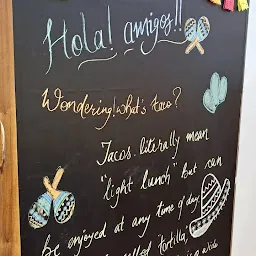 Hola! amigos!!
Wondering! what's taco?
Tacos. literally mean
"light lunch" but can
be enjoyed at any time of day
called "tortilla,"
a wide